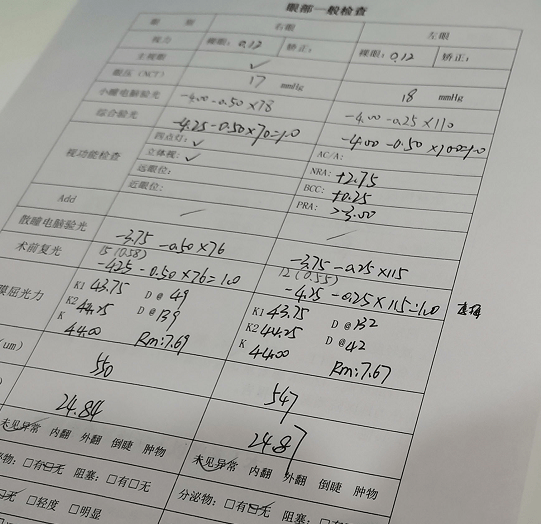 眼部一般检查
眼 别 右眼 左眼
视力 裸眼: 0.12 矫正: 裸眼: 0.12 矫正:
主视眼 ✓
眼压（NCT） 17 mmHg 18 mmHg
小瞳电脑验光 -4.00 -0.50 ×78 -4.00 -0.25 ×110
综合验光 -4.25 -0.50×70=1.0 -4.00 -0.50 ×100=1.0
视功能检查 四点灯: ✓ AC/A:
立体视: ✓ NRA: +2.75
远眼位: BCC: +0.25
近眼位: PRA: >-3.00
Add
散瞳电脑验光 -3.75 -0.50 ×76 -3.75 -0.25 ×115
术前复光 15 (0.58) 12 (0.55)
-4.25 -0.50 ×76=1.0 -4.25 -0.25 ×115=1.0
膜屈光力 K1 43.75 D @ 49 K1 43.75 D @ 132
K2 44.25 D @ 139 K2 44.25 D @ 42
K 44.00 Rm: 7.69 K 44.00 Rm: 7.67
(um) 550 547
24.84 24.87
未见异常 内翻 外翻 倒睫 肿物 未见异常 内翻 外翻 倒睫 肿物
物: □有□无 阻塞: □有□无 分泌物: □有□无 阻塞: □有
□无 □轻度 □明显